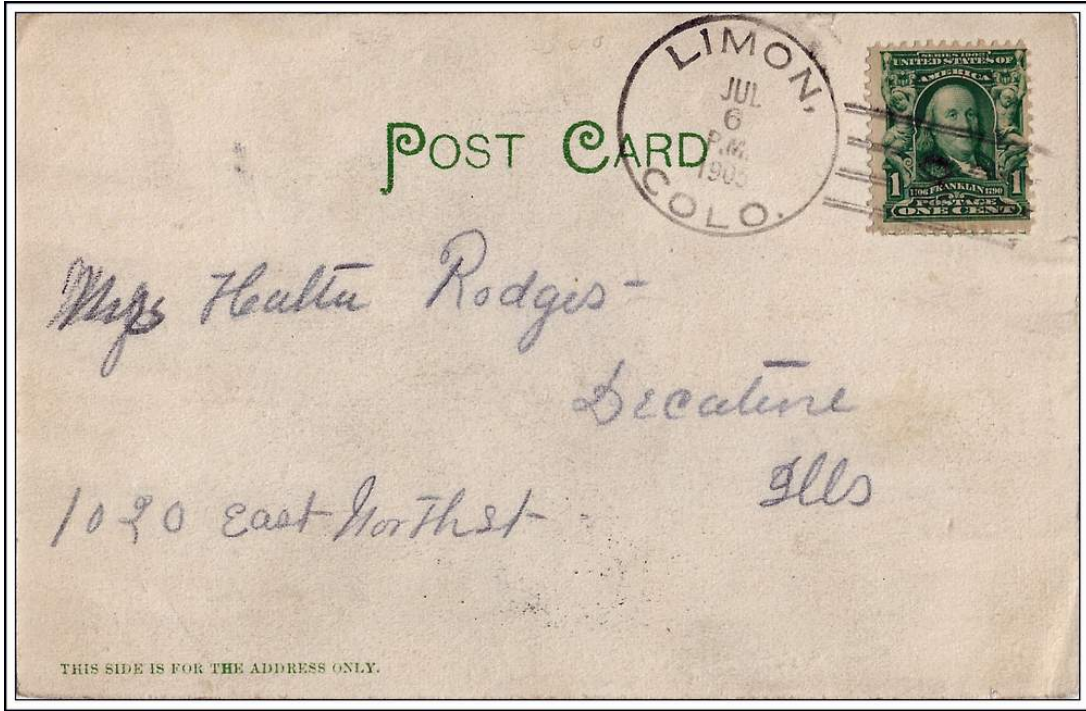 POST CARD
LIMON,
JUL
6
P.M.
1905
COLO.
SERIES 1902
UNITED STATES OF
AMERICA
1 1706 FRANKLIN 1790 1
POSTAGE
ONE CENT
Rodgers-
Decature
Ills
1020 East North st
THIS SIDE IS FOR THE ADDRESS ONLY.